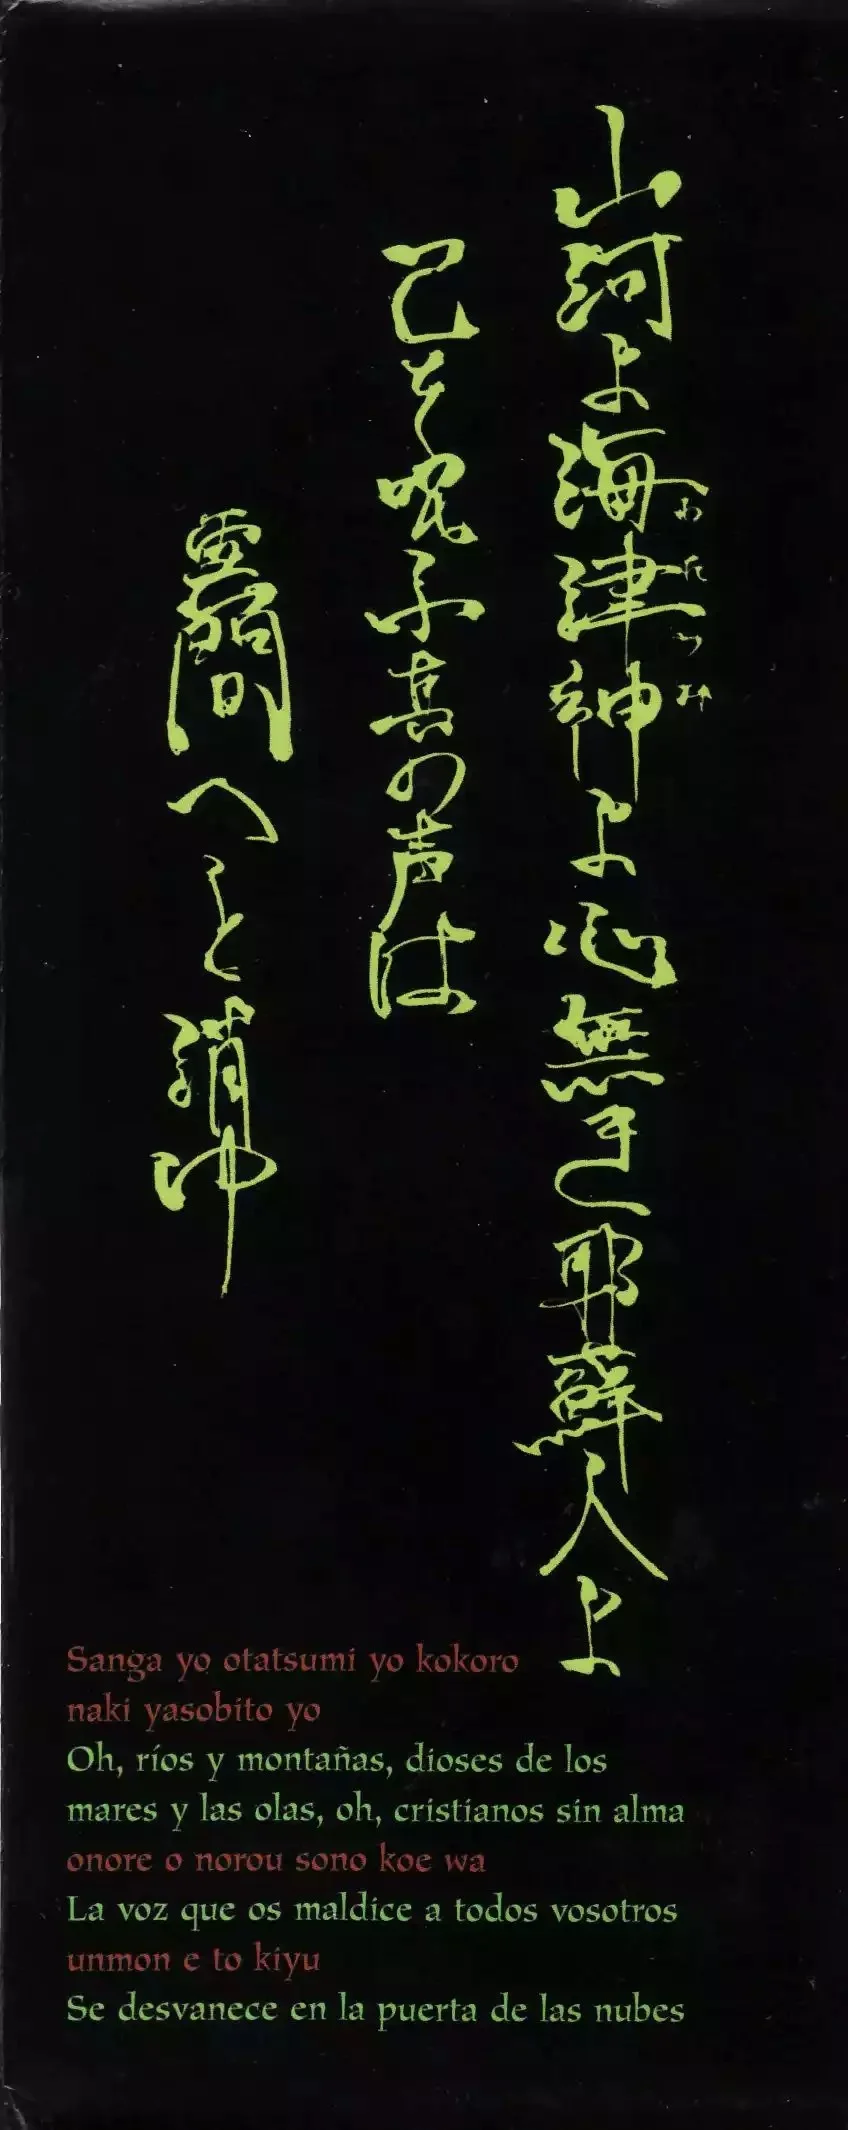 山河よ海津神よ心無き耶蘇人よ
わたつみ
己を呪ふ其の声は
雲間へと消ゆ
Sanga yo otatsumi yo kokoro
naki yasobito yo
Oh, ríos y montañas, dioses de los
mares y las olas, oh, cristianos sin alma
onore o norou sono koe wa
La voz que os maldice a todos vosotros
unmon e to kiyu
Se desvanece en la puerta de las nubes